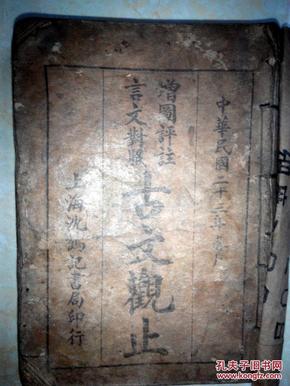 中華民國二十三年
增圖評註
言文對照
古文觀止
上海沈鶴記書局印行
孔夫子旧书网